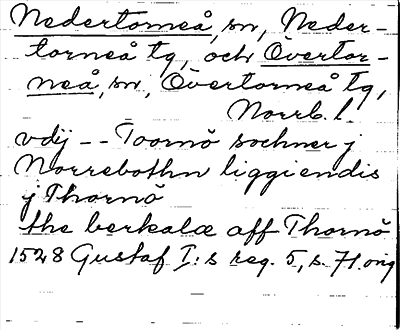 Nedertorneå, sn, Neder-
torneå tg, och Övertor-
neå, sn, Övertorneå tg,
Norrb. l.
vdij -- Toornö sochner j
Norrebothn liggiendis
j Thornö
the berkalæ aff Thornö
1528 Gustaf I:s reg. 5, s. 71. orig